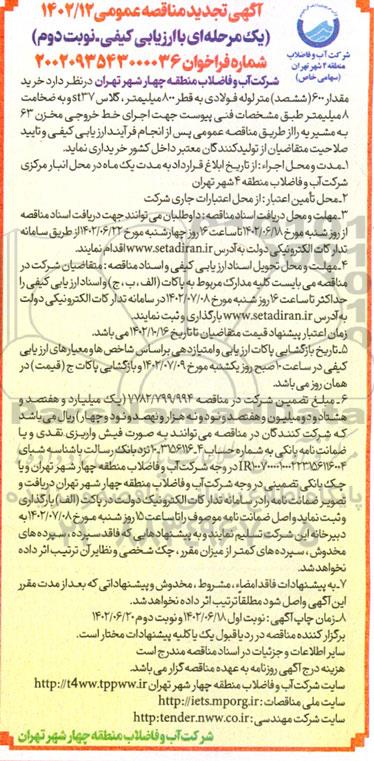 آگهی تجدید مناقصه عمومی ۱۴۰۲/۱۲
(یک مرحله‌ای با ارزیابی کیفی-نوبت دوم)
شماره فراخوان ۲۰۰۲۰۹۳۵۴۳۰۰۰۰۳۶
شرکت آب و فاضلاب
منطقه ۴ شهر تهران
(سهامی خاص)
شرکت آب و فاضلاب منطقه چهار شهر تهران در نظر دارد خرید
مقدار ۶۰۰ (ششصد) متر لوله فولادی به قطر ۸۰۰ میلیمتر، کلاس st۳۷ و به ضخامت
۸ میلیمتر طبق مشخصات فنی پیوست جهت اجرای خط خروجی مخزن ۶۳
به مشیریه را از طریق مناقصه عمومی پس از انجام فرآیند ارزیابی کیفی و تایید
صلاحیت متقاضیان از تولیدکنندگان معتبر داخل کشور خریداری نماید.
۱-مدت و محل اجراء: از تاریخ ابلاغ قرارداد به مدت یک ماه در محل انبار مرکزی
شرکت آب و فاضلاب منطقه ۴ شهر تهران
۲-محل تأمین اعتبار: از محل اعتبارات جاری شرکت
۳-مهلت و محل دریافت اسناد مناقصه: داوطلبان می توانند جهت دریافت اسناد مناقصه
از روز شنبه مورخ ۱۴۰۲/۰۶/۱۸ تا ساعت ۱۶ روز چهارشنبه مورخ ۱۴۰۲/۰۶/۲۲ از طریق سامانه
تدارکات الکترونیکی دولت به آدرس www.setadiran.ir اقدام نمایند.
۴-مهلت و محل تحویل اسناد ارزیابی کیفی و اسناد مناقصه: متقاضیان شرکت در
مناقصه می بایست کلیه مدارک مربوط به پاکات (الف، ب، ج) و اسناد ارزیابی کیفی را
حداکثر تا ساعت ۱۶ روز شنبه مورخ ۱۴۰۲/۰۷/۰۸ در سامانه تدارکات الکترونیکی دولت
به آدرس www.setadiran.ir بارگذاری و ثبت نمایند.
زمان اعتبار پیشنهاد قیمت متقاضیان تا تاریخ ۱۴۰۲/۱۰/۱۶ می باشد.
۵-تاریخ بازگشایی پاکات ارزیابی و امتیازدهی براساس شاخص ها و معیارهای ارزیابی
کیفی در ساعت ۱۰ صبح روز یکشنبه مورخ ۱۴۰۲/۰۷/۰۹ و بازگشایی پاکات ج (قیمت) در
همان روز می باشد.
۶-مبلغ تضمین شرکت در مناقصه ۱/۷۸۲/۷۹۹/۹۹۴ (یک میلیارد و هفتصد و
هشتاد و دو میلیون و هفتصد و نود و نه هزار و نهصد و نود و چهار) ریال می باشد
که شرکت کنندگان در مناقصه می توانند به صورت فیش واریزی نقدی و یا
ضمانت نامه بانکی به شماره حساب ۲۰۳۵۶۱۱۶۰۴ نزد بانک رسالت با شناسه شبای
در وجه شرکت آب و فاضلاب منطقه چهار شهر تهران و یا
چک بانکی تضمینی در وجه شرکت آب و فاضلاب منطقه چهار شهر تهران دریافت و
تصویر ضمانت نامه را در سامانه تدارکات الکترونیک دولت در پاکت (الف) بارگذاری
و ثبت نماید و اصل ضمانت نامه موصوف را تا ساعت ۱۵ روز شنبه مورخ ۱۴۰۲/۰۷/۰۸ به
دبیرخانه این شرکت تسلیم نمایند و به پیشنهادهایی که فاقد سپرده، سپرده های
مخدوش، سپرده های کمتر از میزان مقرر، چک شخصی و نظایر آن ترتیب اثر داده
نخواهد شد.
۷-به پیشنهادات فاقد امضاء، مشروط، مخدوش و پیشنهاداتی که بعد از مدت مقرر
این آگهی واصل شود مطلقاً ترتیب اثر داده نخواهد شد.
۸-زمان چاپ آگهی: نوبت اول ۱۴۰۲/۰۶/۱۸ و نوبت دوم ۱۴۰۲/۰۶/۲۰
برگزار کننده مناقصه در رد یا قبول یک یا کلیه پیشنهادات مختار است.
سایر اطلاعات و جزئیات در اسناد مناقصه مندرج است
هزینه درج آگهی روزنامه به عهده مناقصه گزار می باشد.
سایت شرکت آب و فاضلاب منطقه چهار شهر تهران http://t4ww.tppww.ir
سایت ملی مناقصات: http://iets.mporg.ir
سایت شرکت مهندسی: http:tender.nww.co.ir
شرکت آب و فاضلاب منطقه چهار شهر تهران